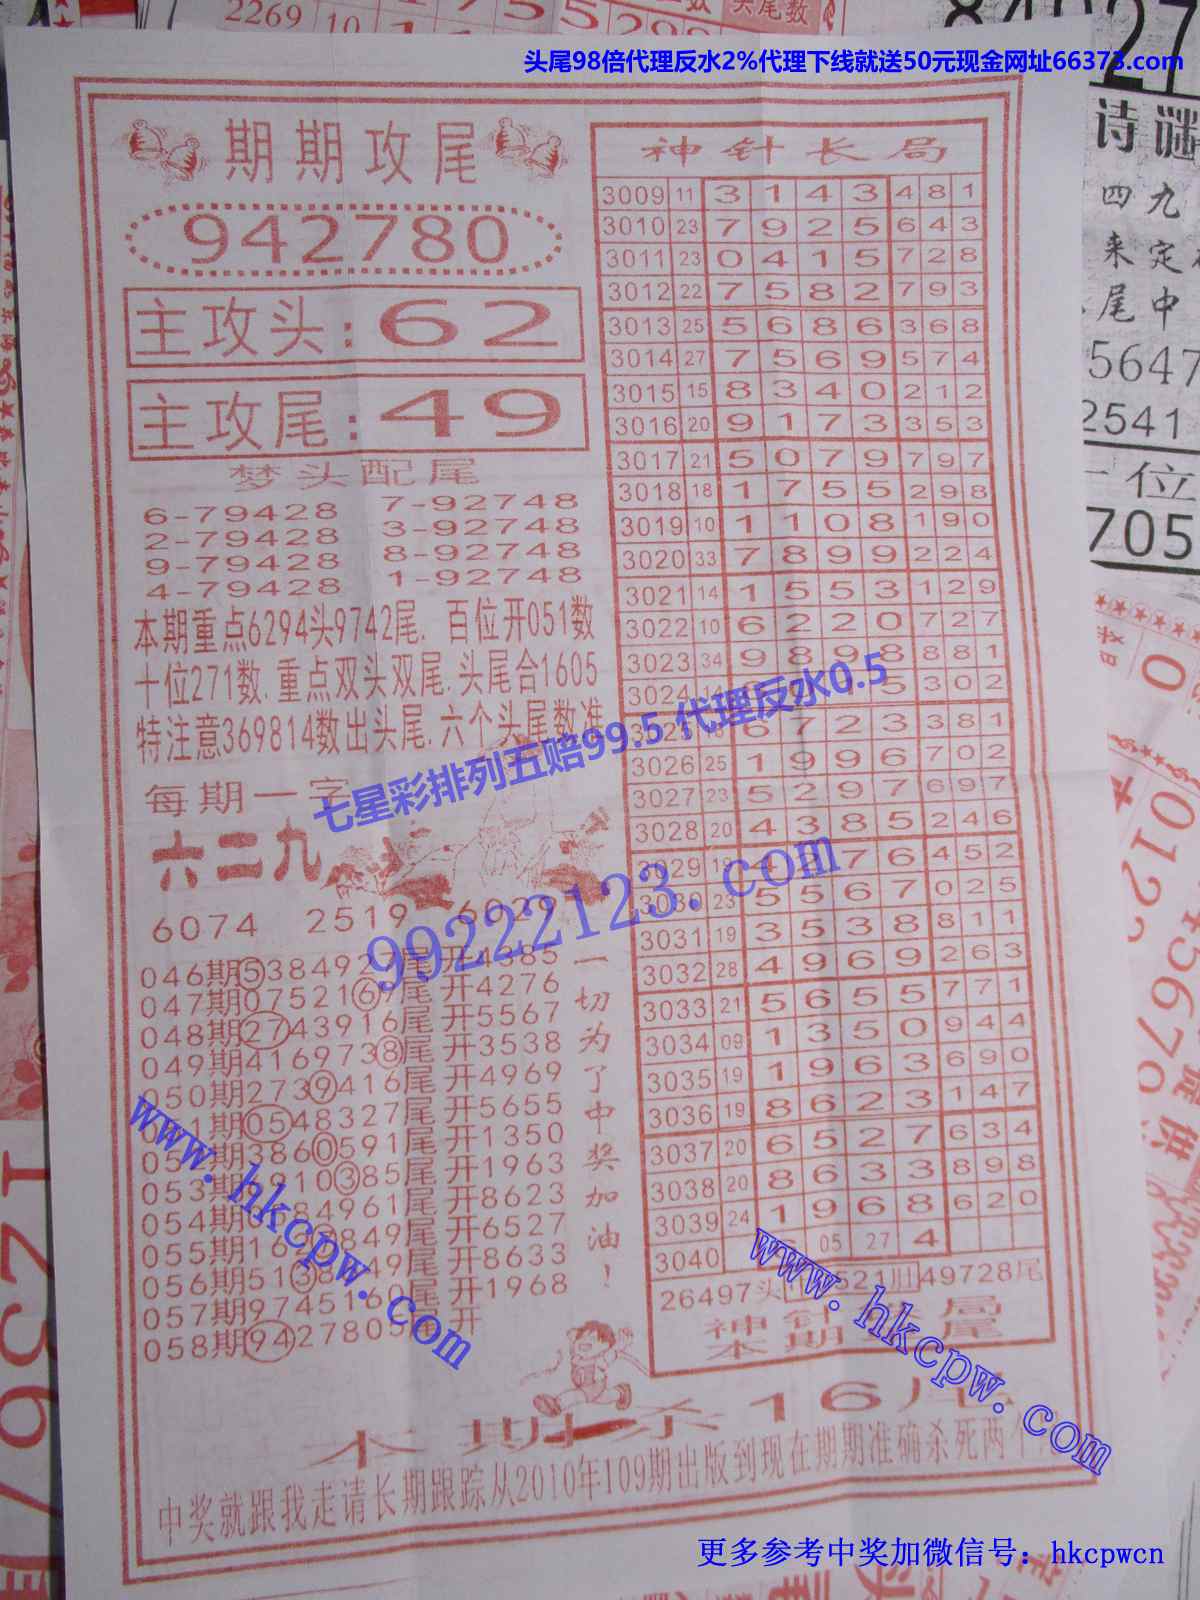 头尾98倍代理反水2%代理下线就送50元现金网址66373.com
2269 10
头尾数
诗谜
四九
来定
尾中
5647
2541
一位
705
期期攻尾
942780
主攻头:62
主攻尾:49
梦头配尾
6-79428 7-92748
2-79428 3-92748
9-79428 8-92748
4-79428 1-92748
本期重点6294头9742尾. 百位开051数
十位271数.重点双头双尾.头尾合1605
特注意369814数出头尾.六个头尾数准
每期一字
六二九
6074 2519
046期5384927尾开4385
047期0752169尾开4276
048期2743916尾开5567
049期4169738尾开3538
050期2739416尾开4969
0548327尾开5655
期3860591尾开1350
053期 10385尾开1963
054期 84961尾开8623
055期16 849尾开6527
056期5138 49尾开8633
057期9745160尾开1968
058期9427805尾开
一切为了中奖加油!
神针长局
3009 11 3 1 4 3 4 8 1
3010 23 7 9 2 5 6 4 3
3011 23 0 4 1 5 7 2 8
3012 22 7 5 8 2 7 9 3
3013 25 5 6 8 6 3 6 8
3014 27 7 5 6 9 5 7 4
3015 15 8 3 4 0 2 1 2
3016 20 9 1 7 3 3 5 3
3017 21 5 0 7 9 7 9 7
3018 18 1 7 5 5 2 9 8
3019 10 1 1 0 8 1 9 0
3020 33 7 8 9 9 2 2 4
3021 14 1 5 5 3 1 2 9
3022 10 6 2 2 0 7 2 7
3023 34 9 8 9 8 8 8 1
3024 5 3 0 2
3025 18 6 7 2 3 3 8 1
3026 25 1 9 9 6 7 0 2
3027 23 5 2 9 7 6 9 7
3028 20 4 3 8 5 2 4 6
3029 19 4 2 7 6 4 5 2
3030 23 5 5 6 7 0 2 5
3031 19 3 5 3 8 8 1 1
3032 28 4 9 6 9 2 6 3
3033 21 5 6 5 5 7 7 1
3034 09 1 3 5 0 9 4 4
3035 19 1 9 6 3 6 9 0
3036 19 8 6 2 3 1 4 7
3037 20 6 5 2 7 6 3 4
3038 20 8 6 3 3 8 9 8
3039 24 1 9 6 8 6 2 0
3040 05 27 4
26497头 521肚49728尾
神针 局
本期 尾
本期杀16尾
中奖就跟我走请长期跟踪从2010年109期出版到现在期期准确杀死两个
七星彩排列五赔99.5 代理反水0.5
99222123.com
www.hkcpw.com
www.hkcpw.com
更多参考中奖加微信号：hkcpwcn